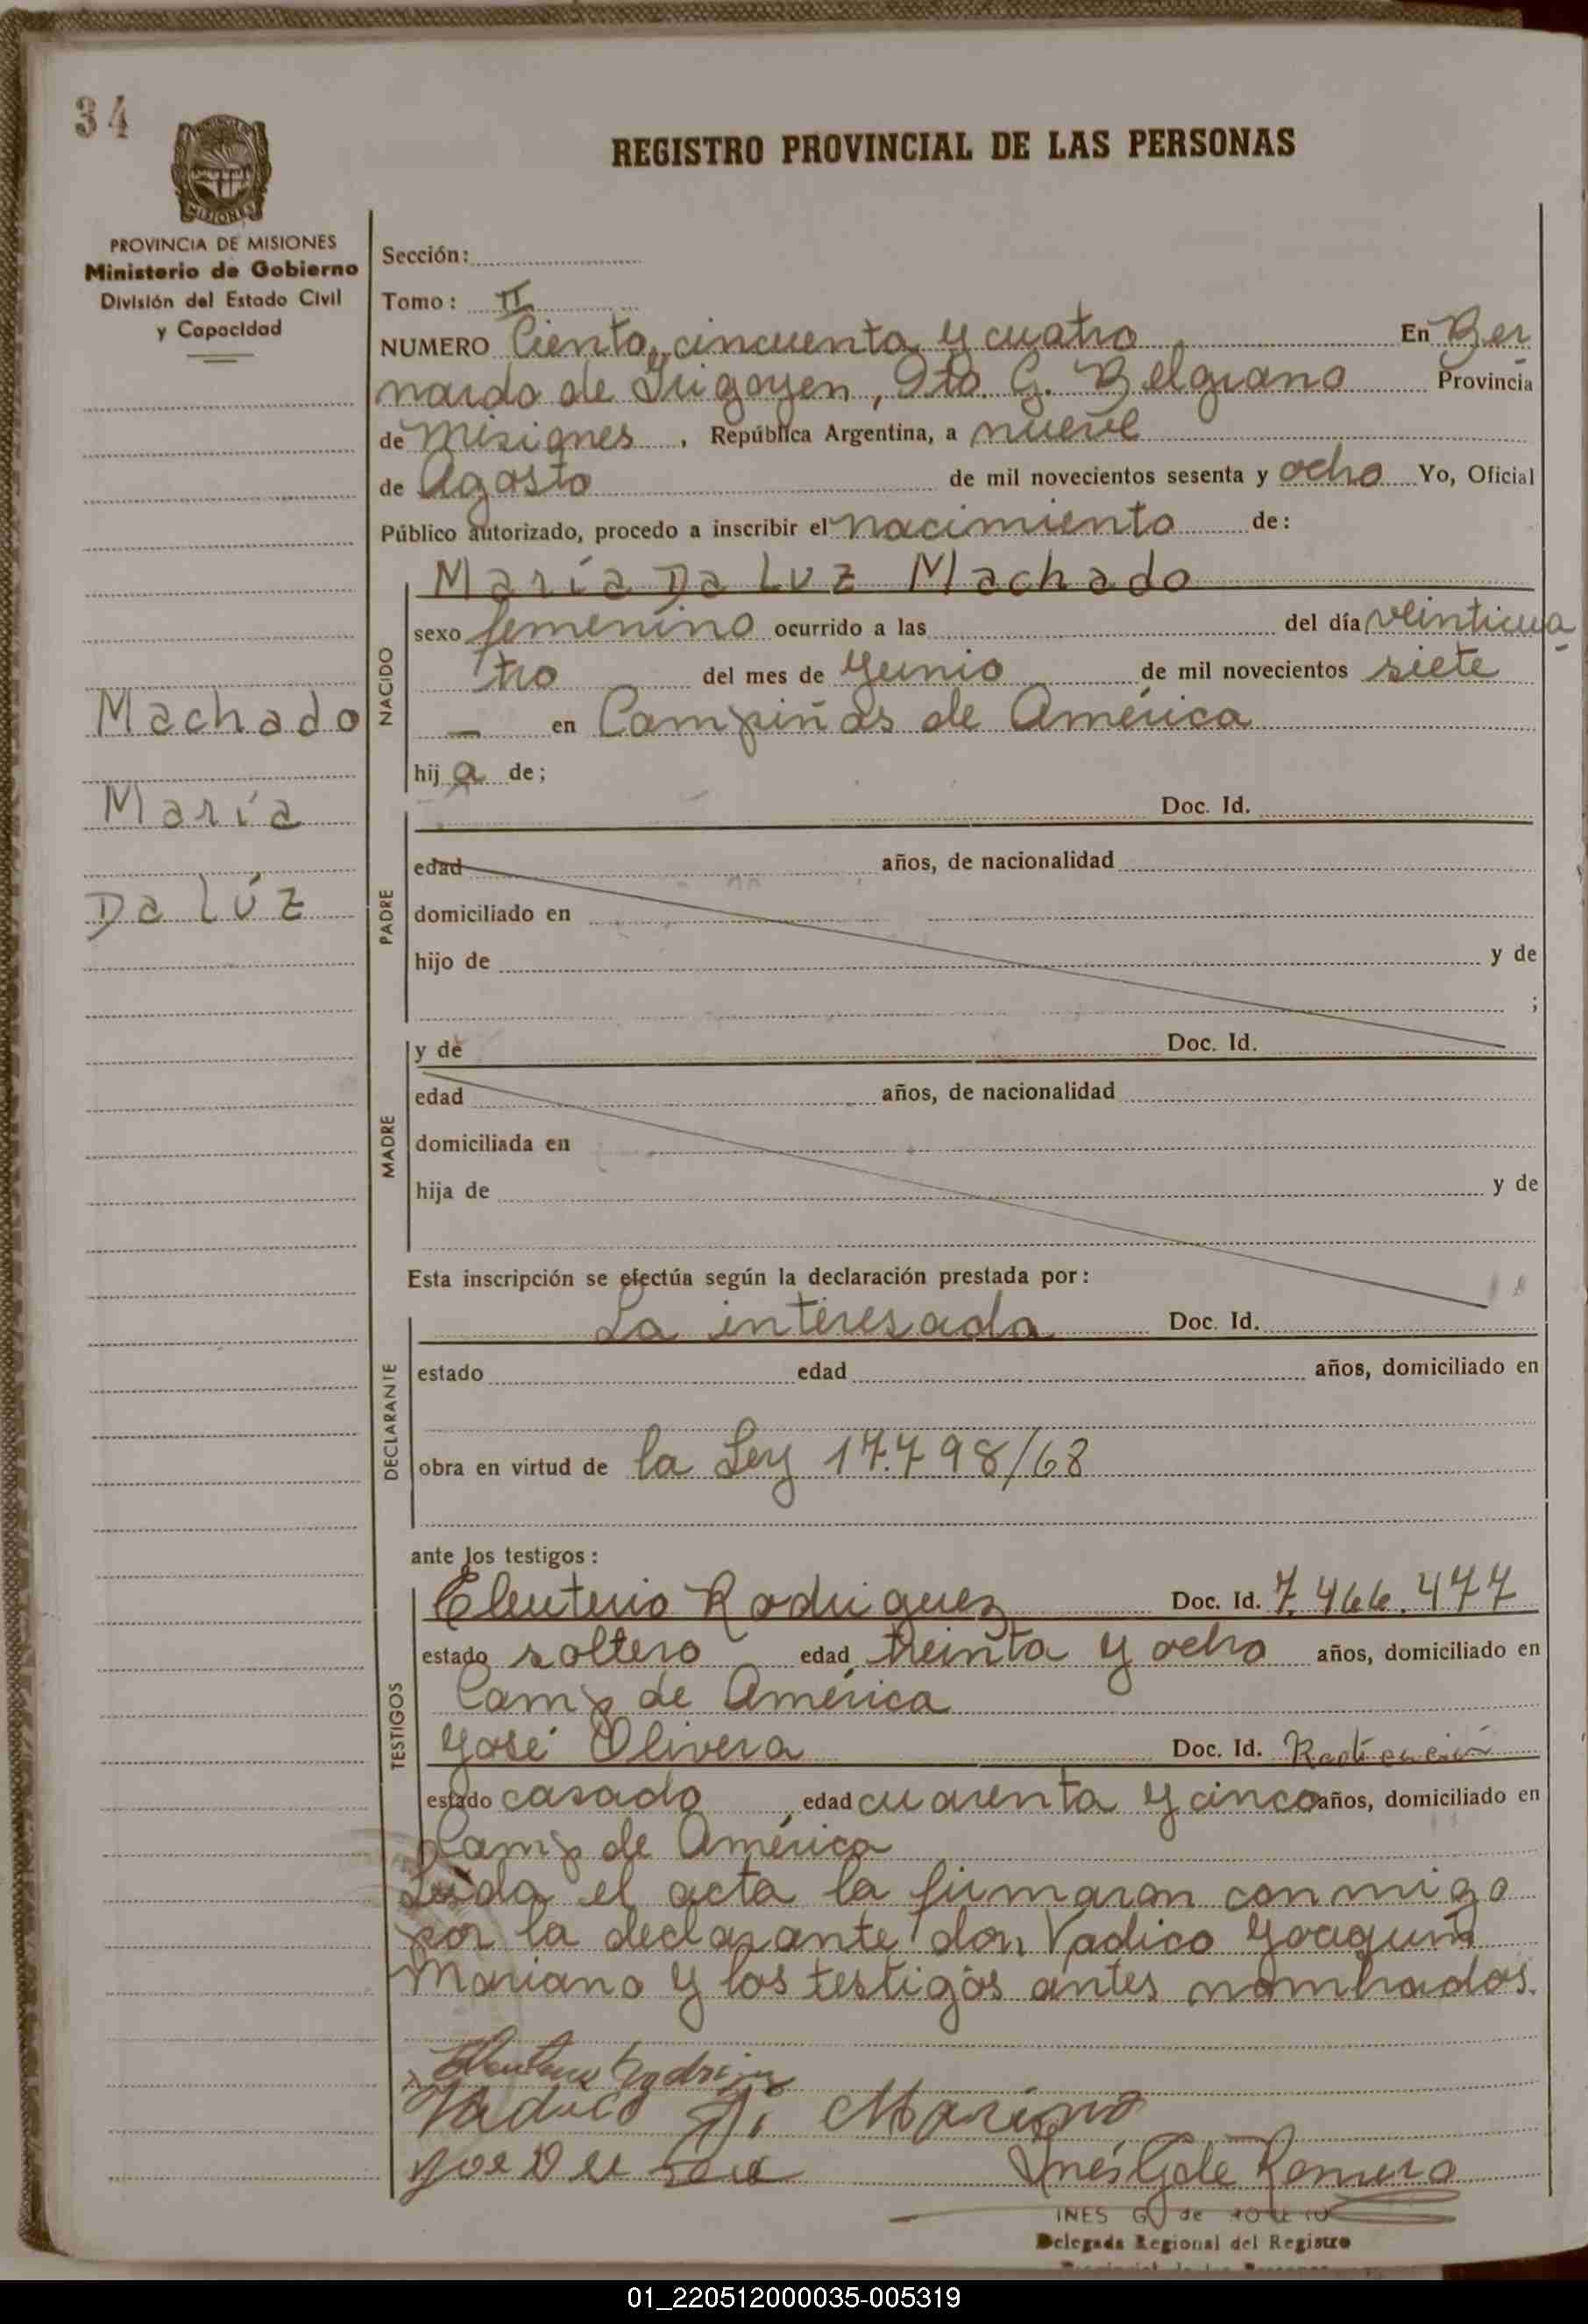 34
REGISTRO PROVINCIAL DE LAS PERSONAS
MISIONES
PROVINCIA DE MISIONES
Ministerio de Gobierno
División del Estado Civil
y Capacidad
Sección:
Tomo: II
NUMERO Ciento cincuenta y cuatro En Ber
nardo de Irigoyen, Dto. G. Belgrano Provincia
de Misiones, República Argentina, a nueve
de Agosto de mil novecientos sesenta y ocho Yo, Oficial
Público autorizado, procedo a inscribir el nacimiento de:
María Da Luz Machado
NACIDO
sexo femenino ocurrido a las del día veinticua
tro del mes de Junio de mil novecientos siete
— en Campiñas de América
hija de;
Machado
María
Da Lúz
PADRE
Doc. Id.
edad años, de nacionalidad
domiciliado en
hijo de y de
;
MADRE
y de Doc. Id.
edad años, de nacionalidad
domiciliada en
hija de y de
Esta inscripción se efectúa según la declaración prestada por:
DECLARANTE
La interesada Doc. Id.
estado edad años, domiciliado en
obra en virtud de la Ley 17.798/68
ante los testigos:
TESTIGOS
Eleuterio Rodriguez Doc. Id. 7.466.477
estado soltero edad treinta y ocho años, domiciliado en
Camp de América
José Olivera Doc. Id.
estado casado edad cuarenta y cinco años, domiciliado en
Camp de América
Leída el acta la firmaron conmigo
por la declarante don Vadico Joaquin
Mariano y los testigos antes nombrados.
Vadico J. Mariano
Inés G de Romero
INES G de
Delegada Regional del Registro
01_220512000035-005319